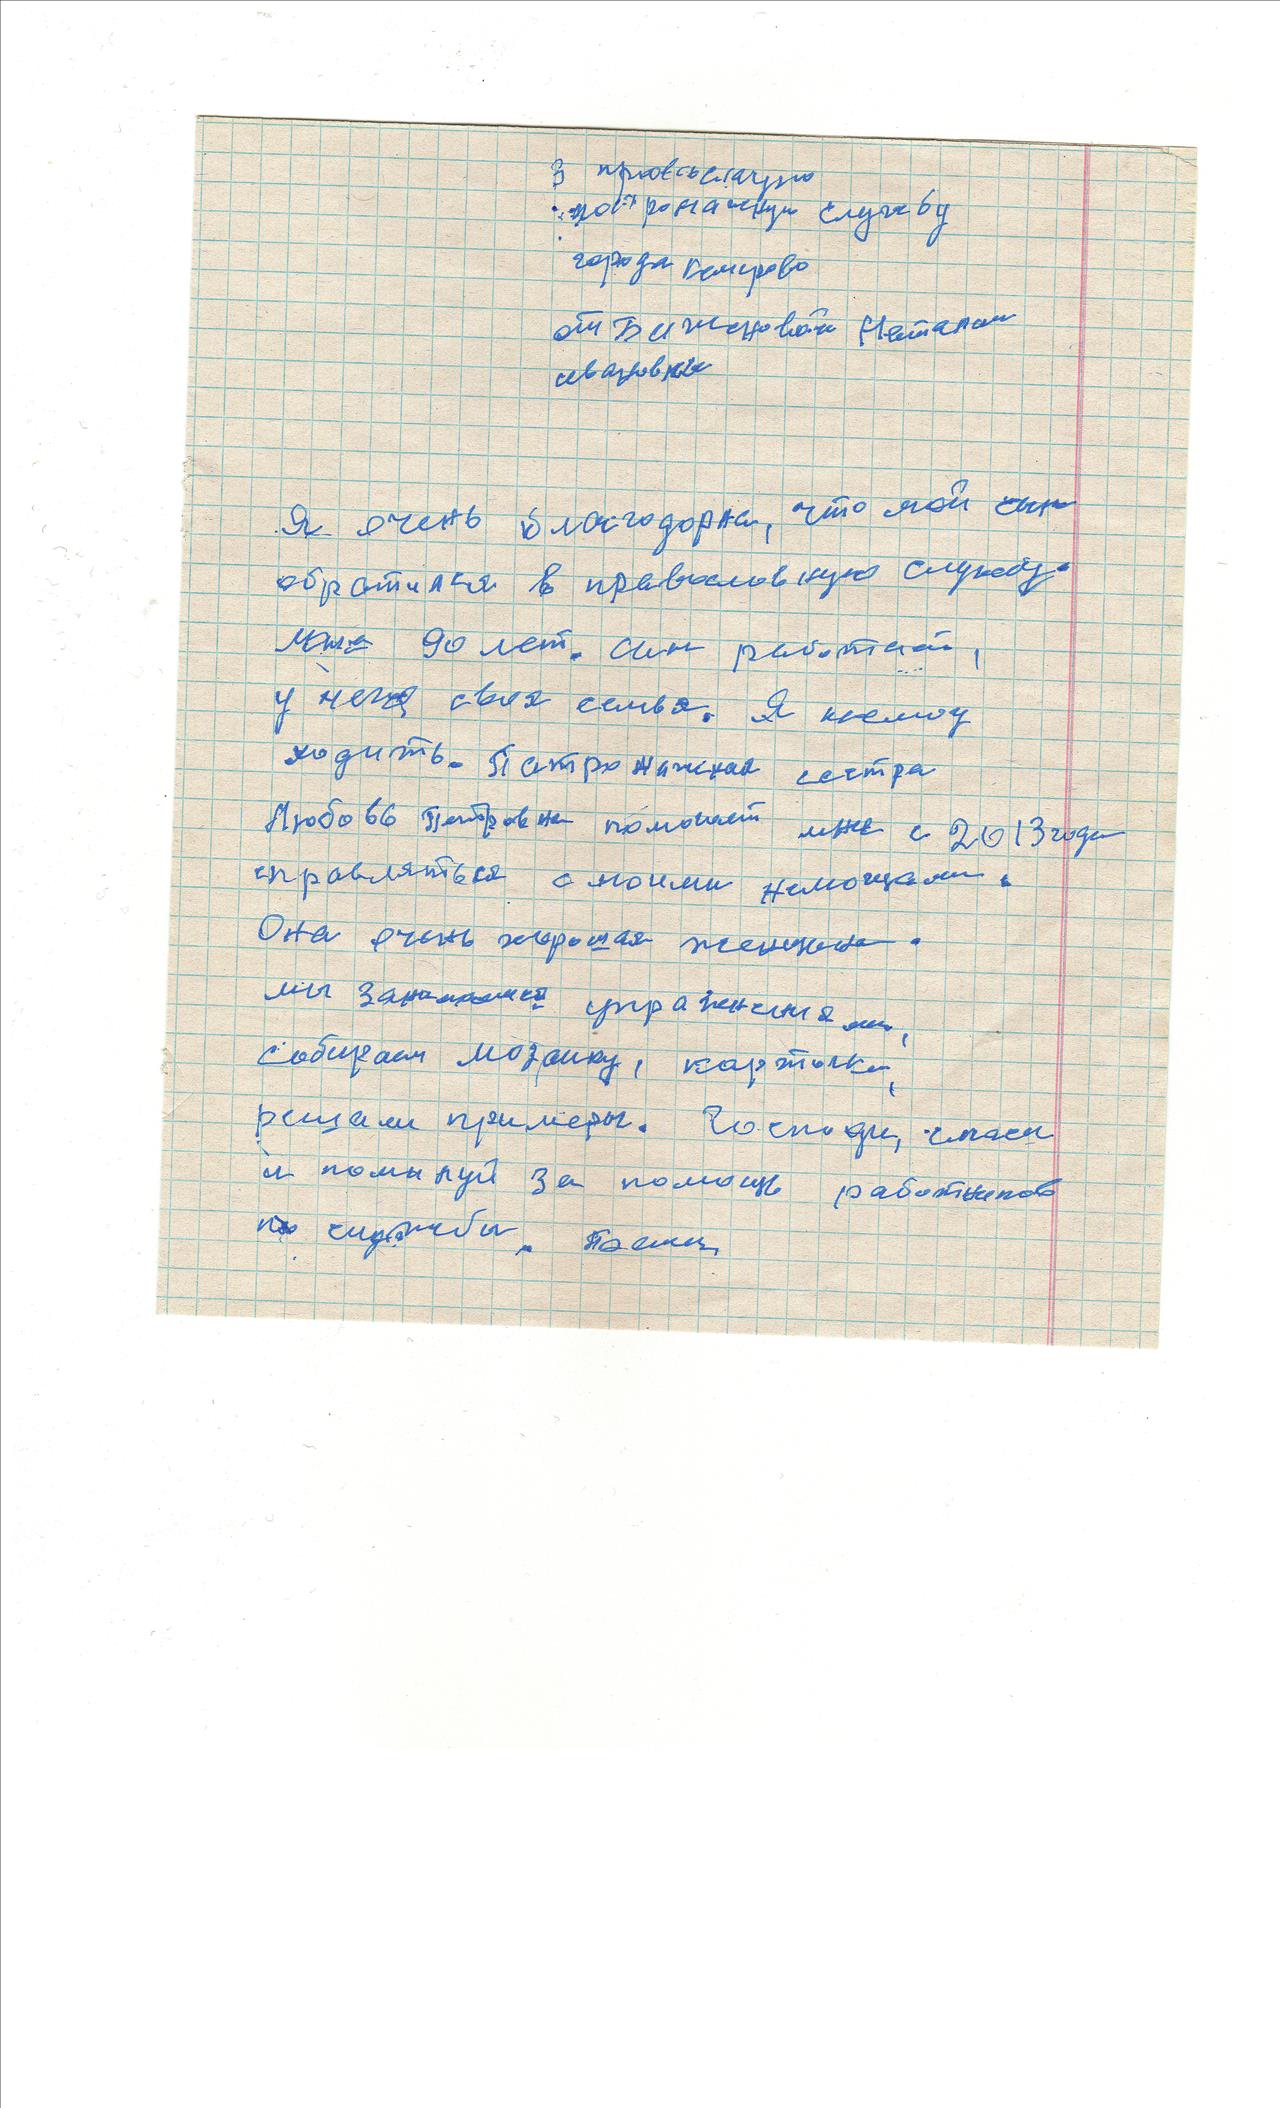 В православную
патронажную службу
города Кемерово
от Баженовой Наталии
ивановны
Я очень благодорна, что мой сын
обратился в православную службу.
мне 90 лет. Сын работает,
у него своя семья. Я немогу
ходить. Патронажная сестра
Любовь Петровна помогает мне с 2013 года
справляться с моими немощами.
Она очень хорошая женщина.
мы занимаемся упражнениями,
собираем мозаику, карточки,
решаем примеры. Господи, спаси
и помилуй за помощь работников
службы.